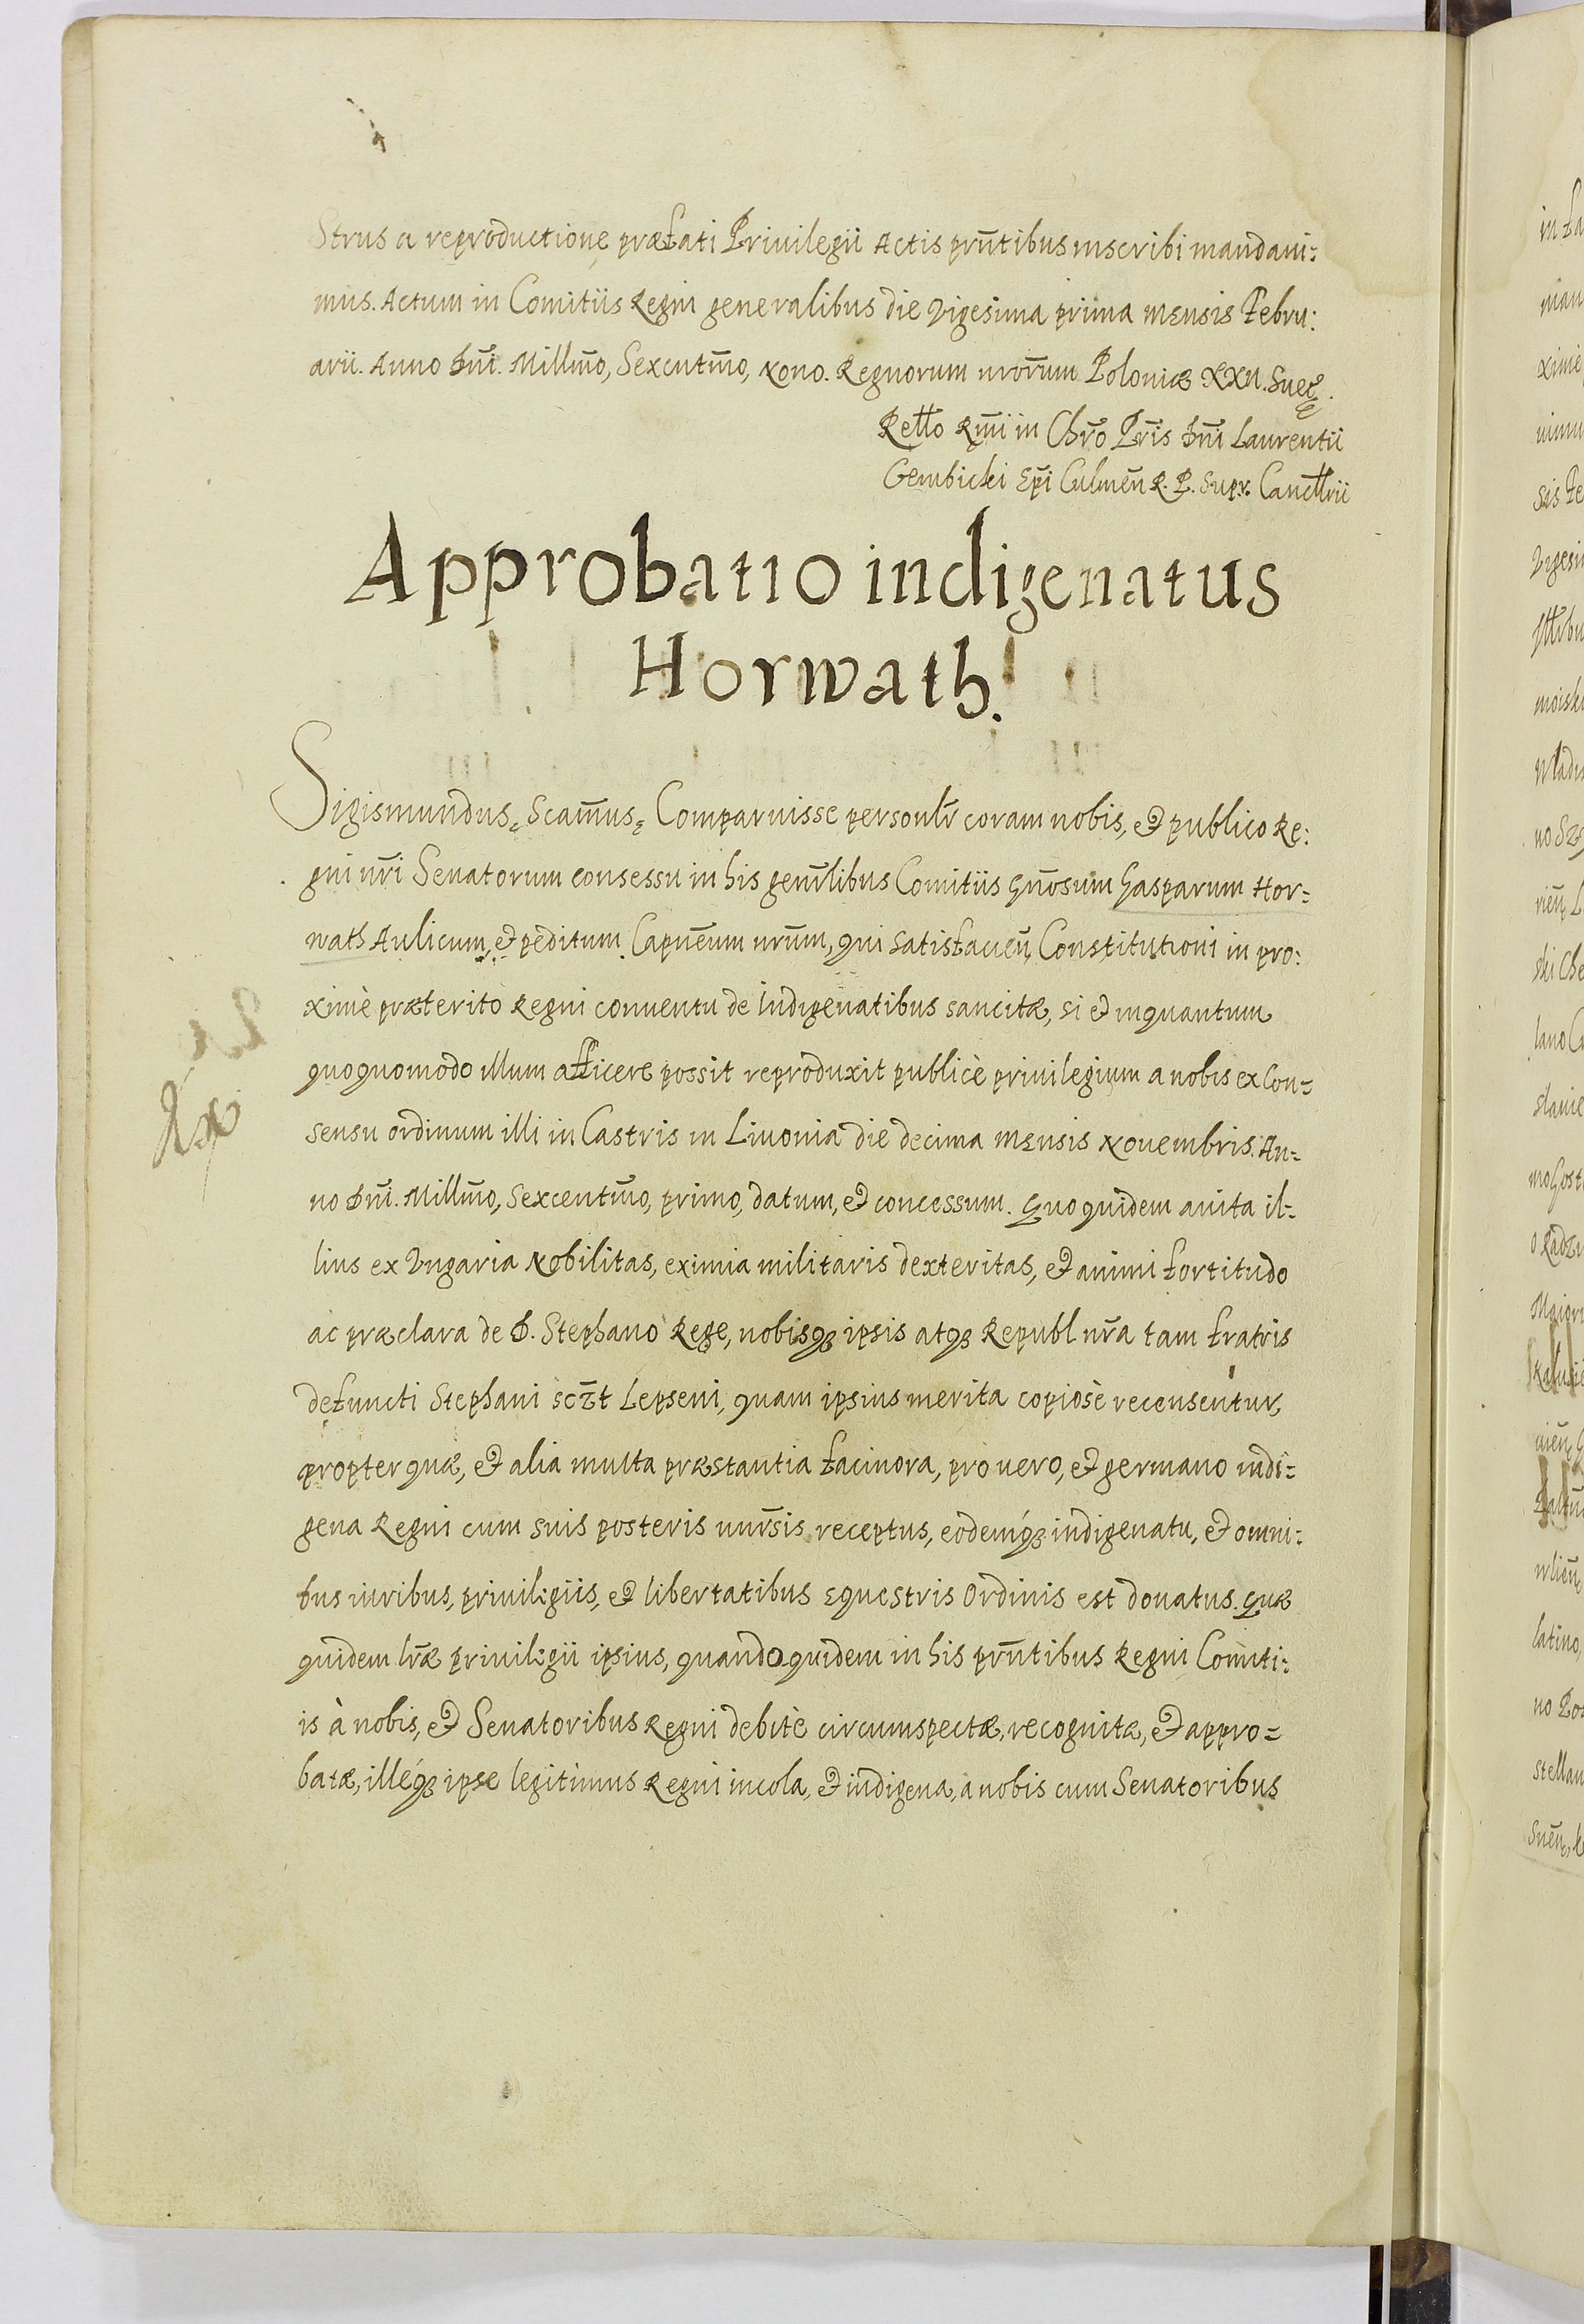 strus a reproductione præfati Priuilegii Actis prñtibus inscribi mandaui:
mus. Actum in Comitiis Regni generalibus die Vigesima prima mensis Febru:
arii. Anno Dñi. Millm̃o, Sexcntm̃o, Nono. Regnorum nror̃um Poloniæ XXII. Suetę.
Retto Rm̃i in Chr̃o Pr̃is Dñi Laurentii
Gembicki Ep̃i Culmeñ R. P. Supr. Cancttrii
Approbatio indigenatus
Horwath.
Sigismundus, Scam̃us, Comparuisse personlr̃ coram nobis, et publico Re:
gni nr̃i Senatorum consessu in his genr̃libus Comitiis Gñosum Gasparum Hor=
wath Aulicum, et peditum Capñeum nrũm, qui satisfacieñ Constitutioni in pro:
ximè præterito Regni conuentu de Indigenatibus sancitæ, si et inquantum
quoquomodo illum afficere possit reproduxit publicè priuilegium a nobis ex Con=
sensu ordinum illi in Castris in Liuonia die decima mensis Nouembris. An=
no Dñi. Millm̃o, Sexcentm̃o, primo, datum, et concessum. Quo quidem auita il=
lius ex Vngaria Nobilitas, eximia militaris dexteritas, et animi fortitudo
ac præclara de D. Stephano Rege, nobisq3 ipsis atq3 Republ nr̃a tam fratris
defuncti Stephani sc̃zt Lepseni, quam ipsius merita copiosè recensentur,
propter quæ, et alia multa præstantia facinora, pro uero, et germano indi=
gena Regni cum suis posteris unr̃sis receptus, eodemq́3 indigenatu, et omni:
bus iuribus, priuilegiis, et libertatibus Equestris Ordinis est donatus. Quæ
quidem lr̃æ priuilegii ipsius, quandoquidem in his prñtibus Regni Comiti=
is à nobis, et Senatoribus Regni debitè circumspectæ, recognitæ, et appro=
batæ, illéq́3 ipse legitimus Regni incola, et indigena, a nobis cum Senatoribus